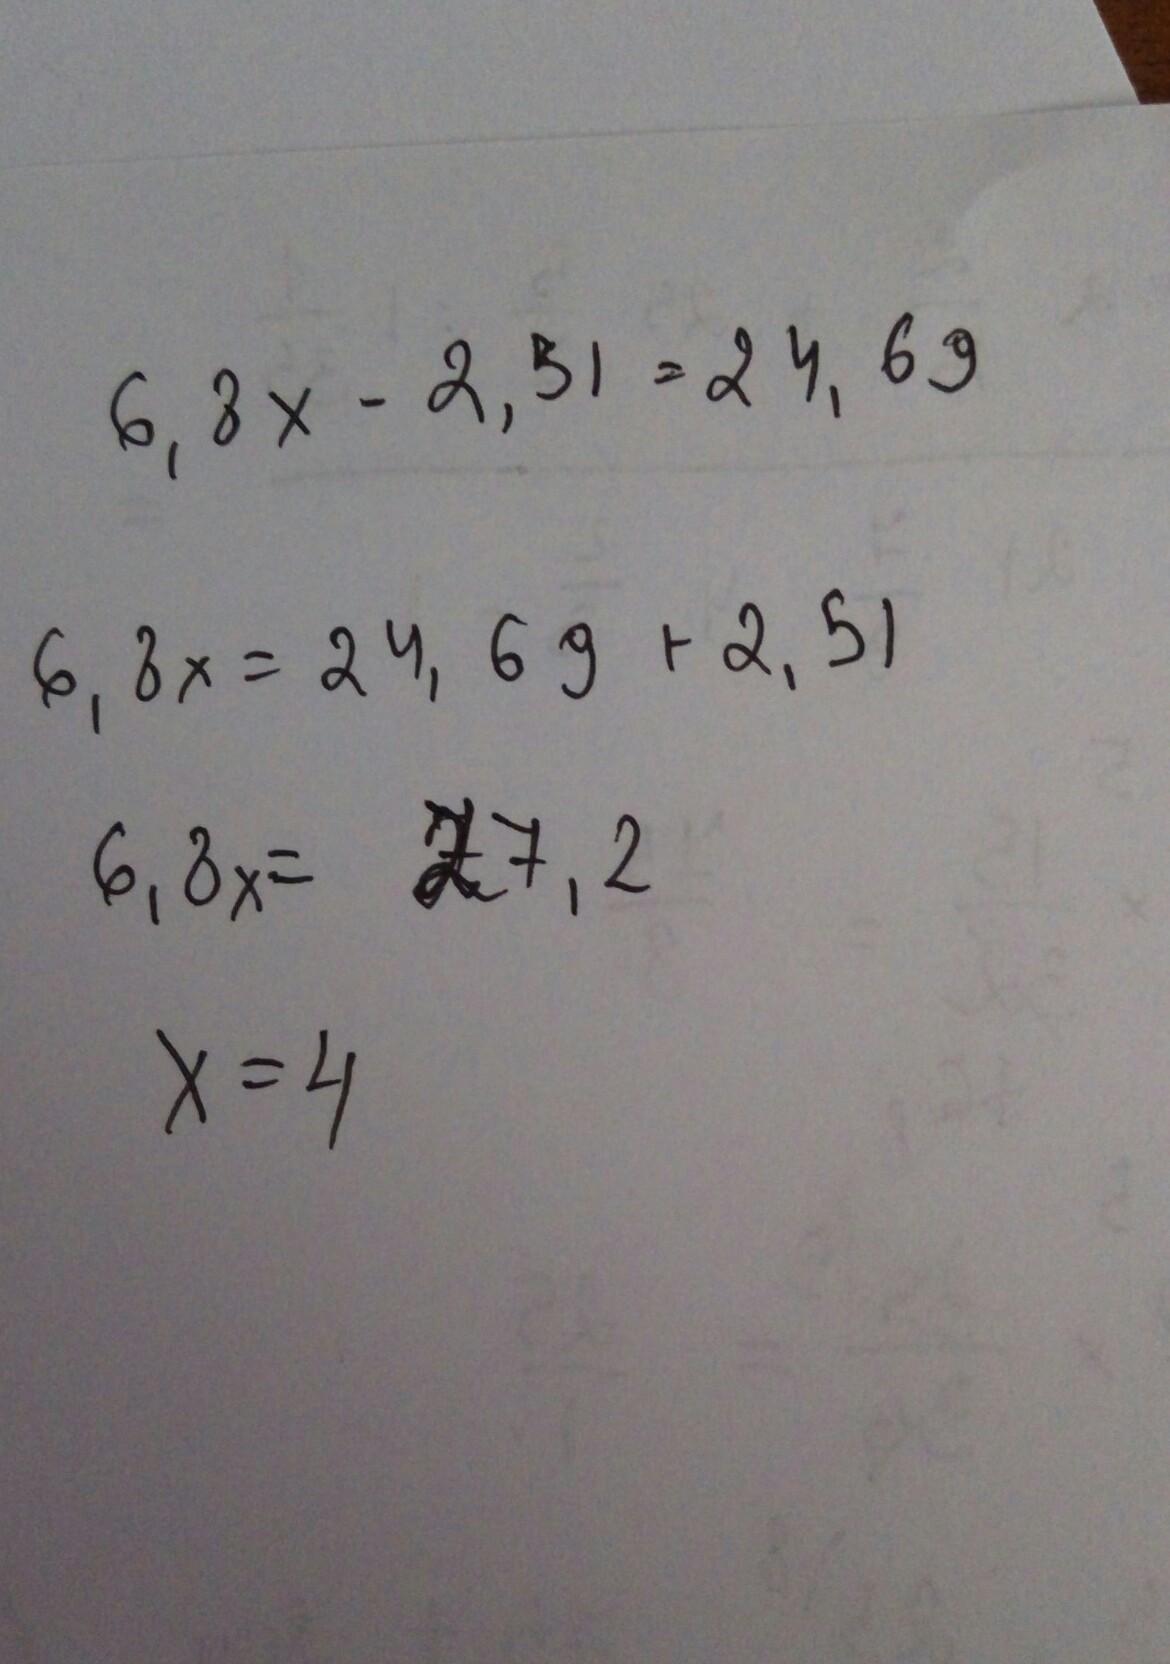 6,8x - 2,51 = 24,69
6,8x = 24,69 + 2,51
6,8x = 27,2
x = 4